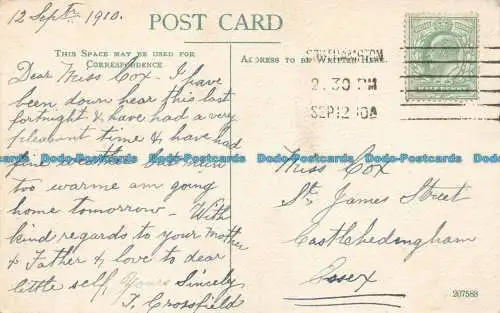 12 Septr 1910.
POST CARD
THIS SPACE MAY BE USED FOR
CORRESPONDENCE
ADDRESS TO BE WRITTEN HERE.
Dear Miss Cox - I have
been down hear this last
fortnight & have had a very
pleasant time & have had
fine weather but much
too warme am going
home tomorrow - With
kind regards to your Mother
& Father & love to dear
little self Yours Sincely
T. Crossfield
2.30 PM
SEP 12 10A
HALFPENNY
Miss Cox
St James Street
Castlehedingham
Essex
207588
Dodo-Postcards Dodo-Postcards Dodo-Postcards Dodo-Postcards Dodo-Postcards